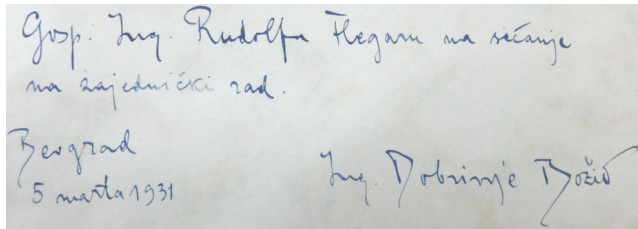 Gosp. Ing. Rudolfa Flegaru na sećanje
na zajednički rad.
Beograd
5 marta 1931
Ing. Dobrivoje Božić